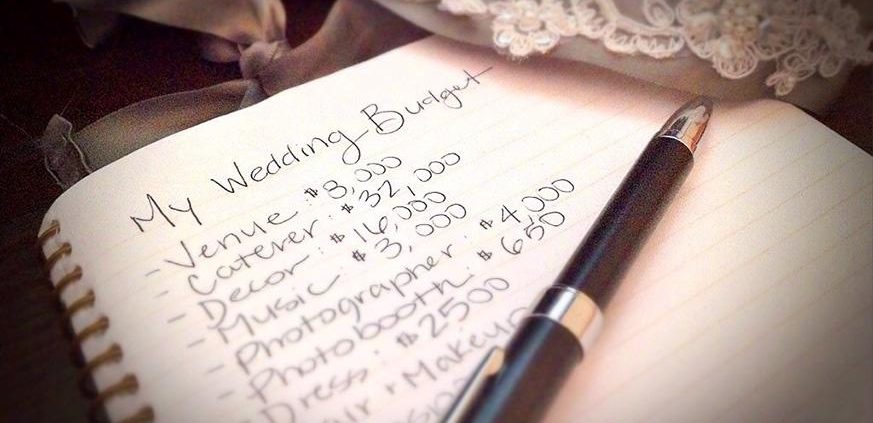 My Wedding Budget
- Venue: $8,000
- Caterer: $32,000
- Decor: $16,000
- Music $3,000
- Photographer: $4,000
- Photobooth: $650
- Dress: $2500
+ Makeup